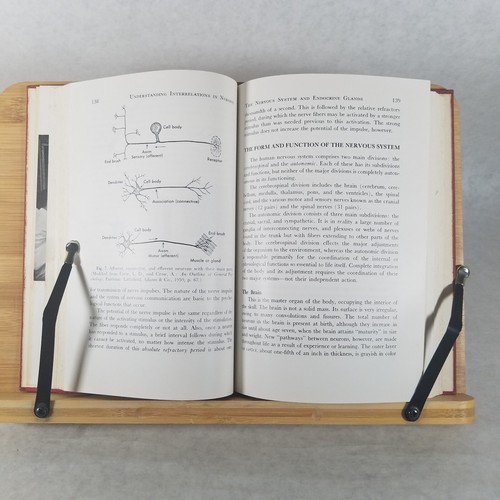 138
UNDERSTANDING INTERRELATIONS IN
Cell body
Axon
Sensory (afferent)
End brush
Receptors
Dendrites
Cell body
Axon
Association (connective)
Dendrites
Cell body
End brush
Axon
Motor (efferent)
Muscle or gland
for transmission of nerve impulses. The nature of the nerve impulse
and the means of nervous communication are basic to the
The potential of the nerve impulse is the same regardless of the
nature of the activating stimulus or the intensity of the stimulus.
The fiber responds completely or not at all. Also, once a nerve
has responded to a stimulus, a brief interval follows during which
it cannot be activated, no matter how intense the stimulus. The
duration of this absolute refractory period is about one
THE NERVOUS SYSTEM AND ENDOCRINE GLANDS 139
of a second. This is followed by the relative refractory
period, during which the nerve fibers may be activated by a stronger
stimulus than was needed previous to this activation. The strong
stimulus does not increase the potential of the impulse, however.
THE FORM AND FUNCTION OF THE NERVOUS SYSTEM
The human nervous system comprises two main divisions: the
and the autonomic. Each of these has its subdivisions
and functions, but neither of the major divisions is completely auton-
omous in its functioning.
The cerebrospinal division includes the brain (cerebrum, cere-
bellum, medulla, thalamus, pons, and the ventricles), the spinal
cord, and the various motor and sensory nerves known as the cranial
nerves (12 pairs) and the spinal nerves (31 pairs).
The autonomic division consists of three main subdivisions: the
cranial, sacral, and sympathetic. It is in reality a large number of
ganglia of interconnecting nerves, and plexuses or webs of nerves
located in the trunk but with fibers extending to other parts of the
body. The cerebrospinal division effects the major adjustments
of the organism to the environment, whereas the autonomic division
is responsible primarily for the coordination of the internal or
physiological functions so essential to life itself. Complete integration
of the body and its adjustment requires the coordination of these
two major systems—not their independent action.
The Brain
This is the master organ of the body, occupying the interior of
the skull. The brain is not a solid mass. Its surface is very irregular,
owing to many convolutions and fissures. The total number of
neurons in the brain is present at birth, although they increase in
size until about age seven, when the brain attains "maturity" in size
and weight. New "pathways" between neurons, however, are made
throughout life as a result of experience or learning. The outer layer
or cortex, about one-fifth of an inch in thickness, is grayish in color